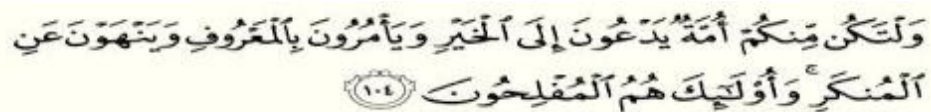 وَلْتَكُن مِّنكُمْ أُمَّةٌ يَدْعُونَ إِلَى ٱلْخَيْرِ وَيَأْمُرُونَ بِٱلْمَعْرُوفِ وَيَنْهَوْنَ عَنِ
ٱلْمُنكَرِ ۚ وَأُو۟لَـٰٓئِكَ هُمُ ٱلْمُفْلِحُونَ ﴿١٠٤﴾